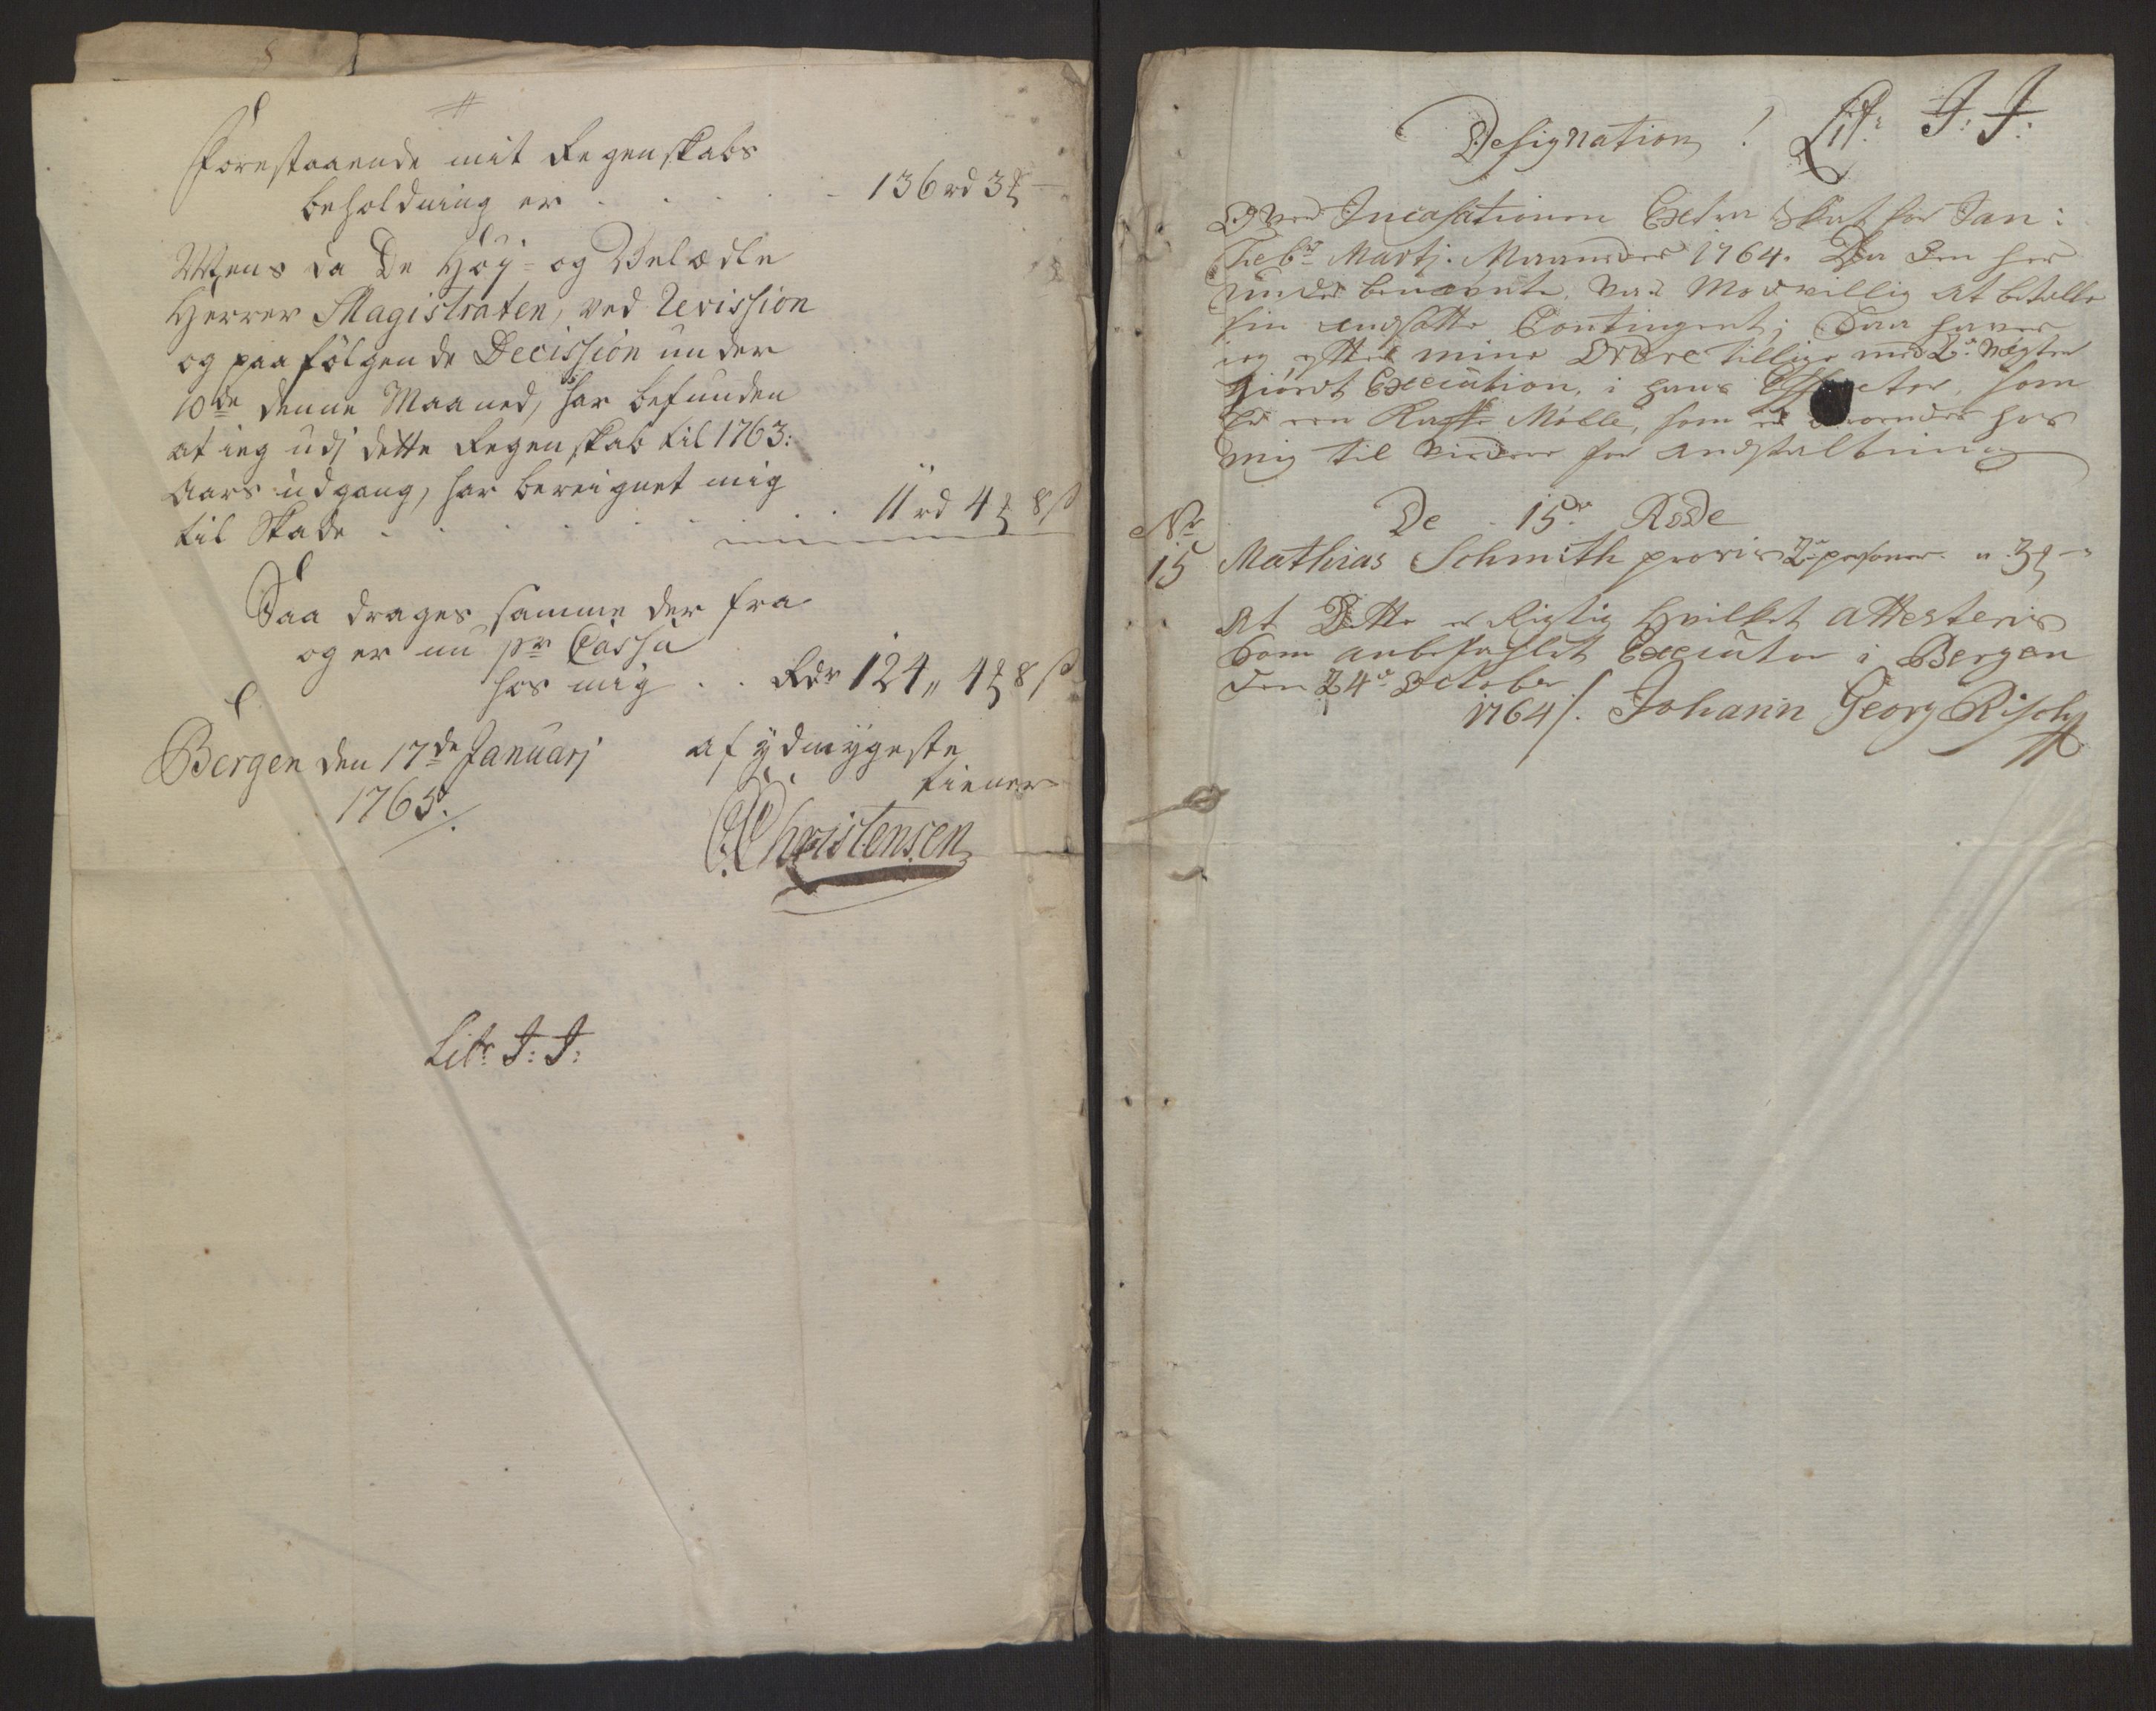 Forestaaende mit Regenskabs
beholdning er . . . . 136 rd 3 ꝑ —
Mens da De Höy- og Velædle
Herrer Magistraten, ved Revission
og paafölgende Decission under
10de denne Maaned, har befunden
at ieg udj dette Regenskab til 1763:
Aars udgang, har bereignet mig
til Skade . . . . . . . 11 rd 4 ꝑ 8 ß
Saa drages samme der fra
og er nu pr Cassa
hos mig . . Rdr 124 „ 4 ꝑ 8 ß
Bergen den 17de Januarj
1765.
af ydmygeste
tiener
Christensen
Litr: J: J:
Designation! Litr: J: J:
Over Incasationen Extra Skat for Jan:
Febr: Martj. Maaneder 1764. Da den her
under benævnte, var Modvillig at betalle
sin ansatte Contingent; Saa haver
ieg efter mine Ordre tillige med 2de Vægter
giordt Execution, i hans Effecter, som
er een Kaffe Mölle, som er hos
mig til videre for anstaltning
De 15de Rode
No
15 Mathias Schmith provis 2de personer „ 3 ꝑ —
At Dette er Rigtig Hvilket Attesteris
Som anbefahlet Executor i Bergen
den 24de October
1764/. Johann Georg Risch